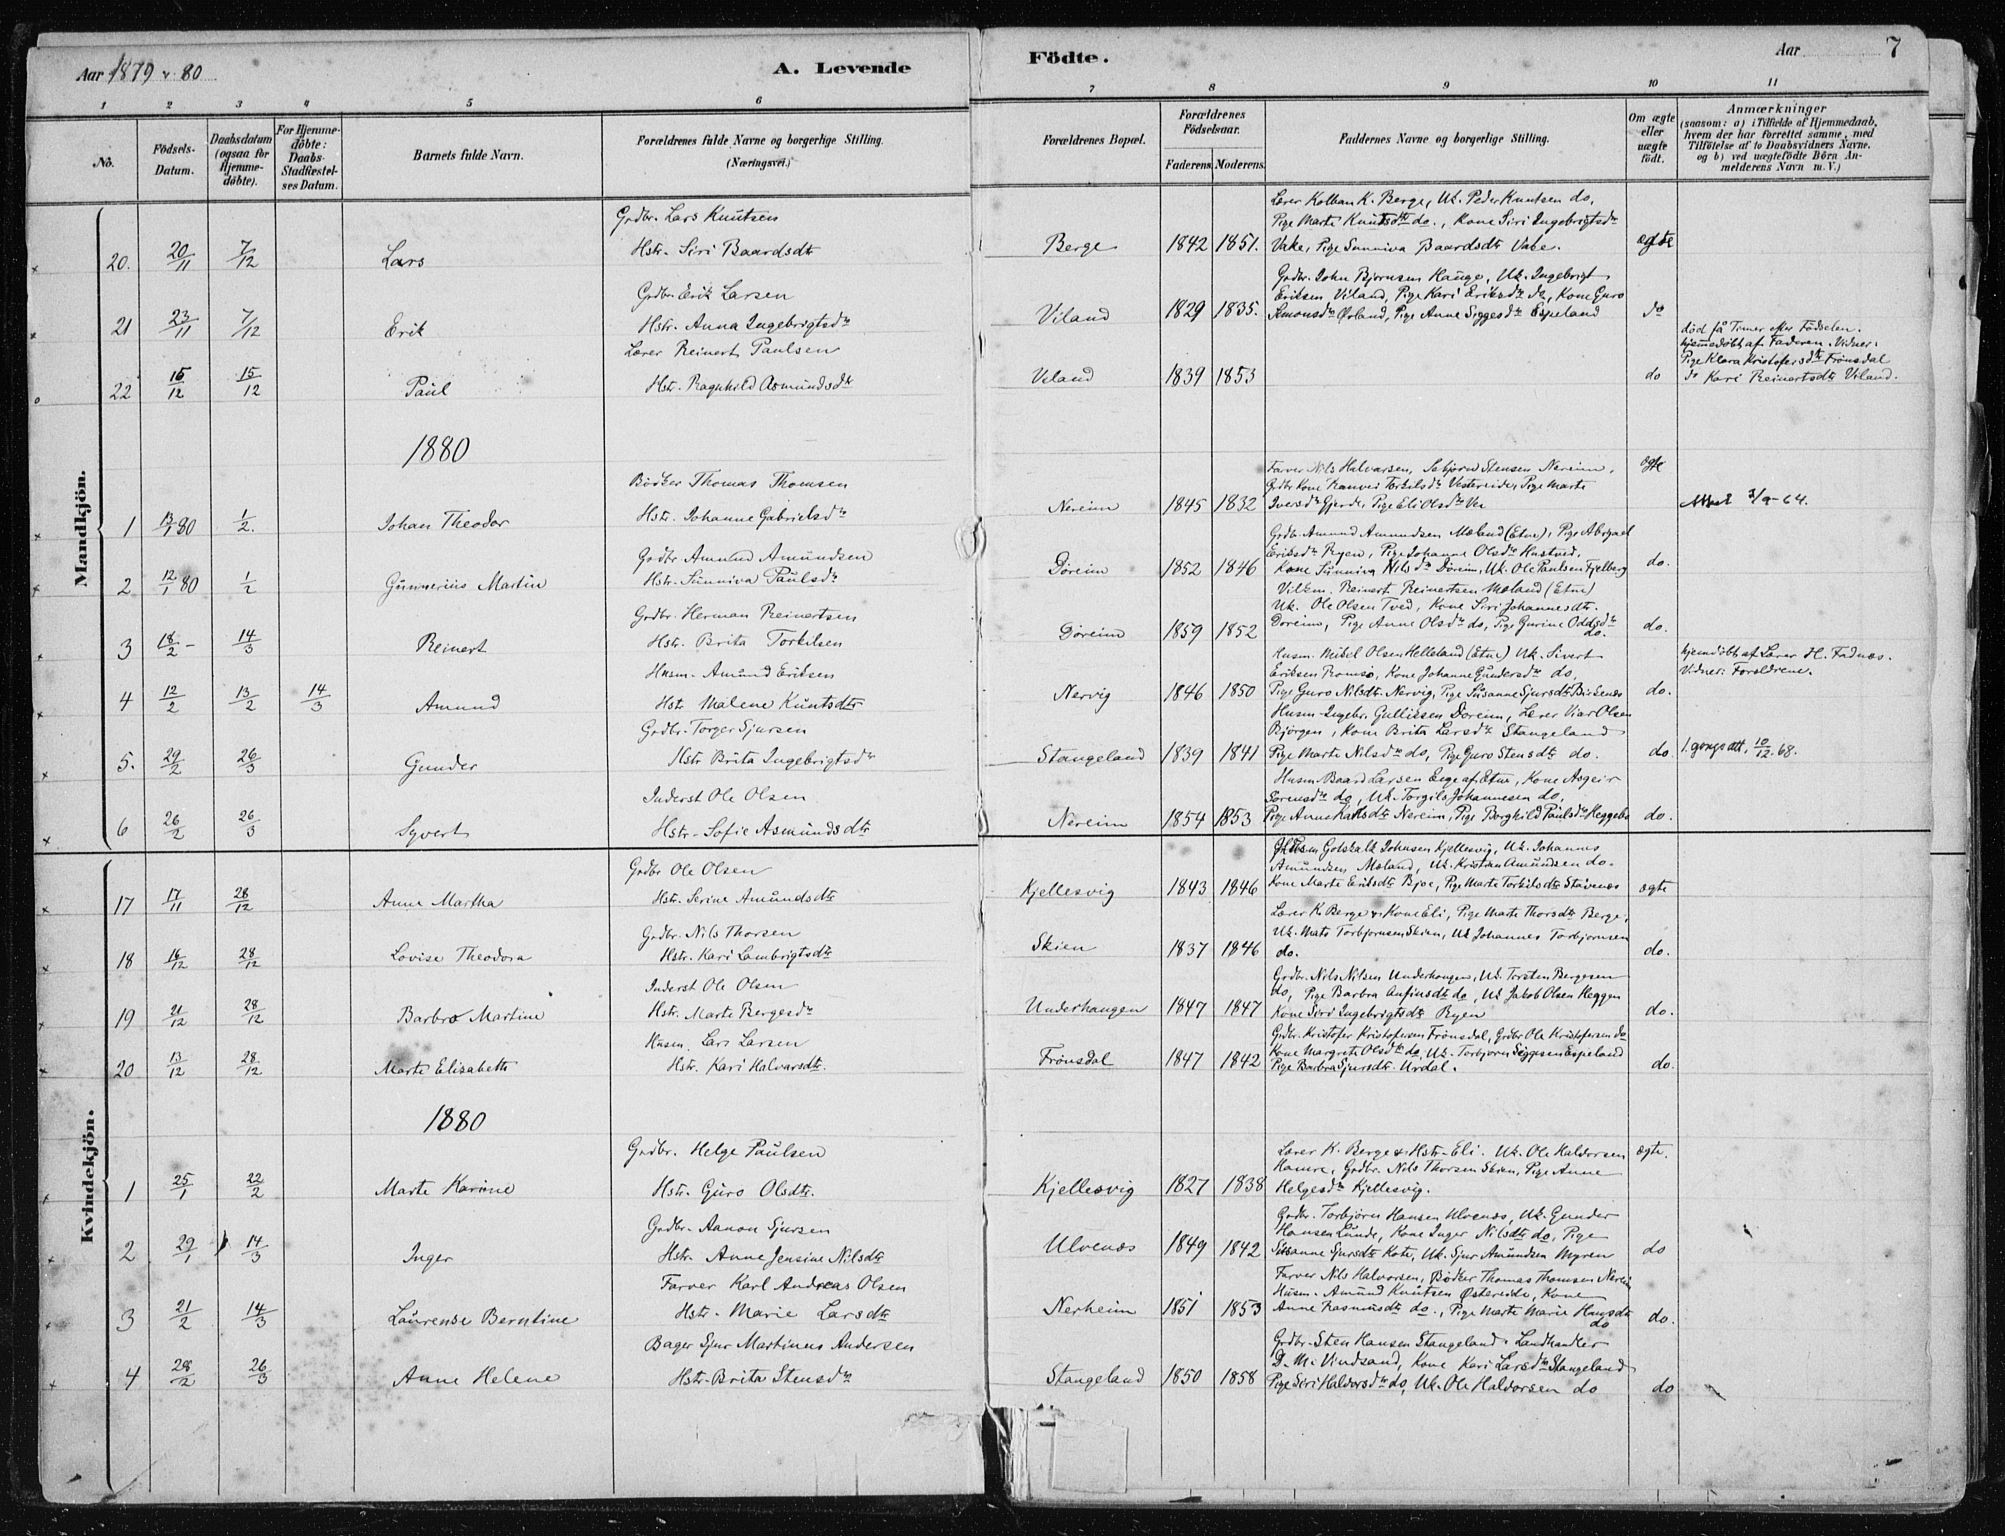 Aar 1879 & 80
A. Levende
Födte.
Aar 7
1 2 3 4 5 6 7 8 9 10 11
No.
Födsels-Datum.
Daabsdatum (ogsaa for Hjemme-döbte).
For Hjemme-döbte: Daabs-Stadfæstel-ses Datum.
Barnets fulde Navn.
Forældrenes fulde Navne og borgerlige Stilling. (Næringsvei.)
Forældrenes Bopæl.
Forældrenes Födselsaar.
Faderens. Moderens.
Faddernes Navne og borgerlige Stilling.
Om ægte eller uægte födt.
Anmærkninger
(saasom: a) i Tilfælde af Hjemmedaab, hvem der har forrettet samme, med Tilföielse af to Daabsvidners Navne. og b) ved uægtefödte Börn An-melderens Navn m. V.)
Mandkjön.
20. 20/11 7/12 Lars
Grdbr. Lars Knutsen
Hstr. Siri Baardsdtr
Berge 1842 1851.
Lærer Kolban K. Berge, Uk. Peder Knutsen do,
Pige Marte Knutsdtr do., Kone Siri Ingebrigtsdtr
Vake, Pige Sunniva Baardsdtr Vake.
ægte
21 23/11 7/12 Erik
Grdbr. Erik Larsen
Hstr. Anna Ingebrigtsdtr
Viland 1829 1835.
Grdbr. John Bjørnsen Hauge, Uk. Ingebrigt
Eriksen Viland, Pige Kari Eriksdtr do, Kone Guro
Simonsdtr Ørland, Pige Anne Siggesdtr Espeland
do
22 15/12 15/12 Paul
Lærer Reinert Paulsen
Hstr. Ragnhild Asmundsdtr
Viland 1839 1853
do
død få Timer efter Fødselen.
hjemmedøbt af Faderen. Vidner:
Pige Klara Kristofersdtr Frønsdal
do Kari Reinertsdtr Viland.
1880
1 13/1 80 1/2. Johan Theodor
Bødker Thomas Thomsen
Hstr. Johanne Gabrielsdtr
Nereim 1845 1832
Farver Nils Halvarsen, Sebjørn Stensen Nereim,
Grdbr Kone Ranvei Torkilsdtr Vestereide, Pige Marte
Iversdtr Gjerde, Pige Eli Olsdtr Ve
ægte
Attest 3/9-64.
2 12/1 80 1/2 Gunnerius Martin
Grdbr Amund Amundsen
Hstr. Sunniva Paulsdtr
Døreim 1852 1846
Grdbr. Amund Amundsen Mæland (Etne), Pige Abigael
Eriksdtr Ryen, Pige Johanne Olsdtr Hustved,
Kone Sunniva Nilsdtr Døreim, Uk. Ole Paulsen Fjelberg
do.
3 18/2 - 14/3 Reinert
Grdbr. Herman Reinertsen
Hstr. Brita Torkilsen
Døreim 1859 1852
Vilkm. Reinert Reinertsen Mæland (Etne)
Uk. Ole Olsen Tved, Kone Siri Johannesdtr.
Døreim, Pige Anne Olsdtr do, Pige Gurine Oddsdtr do.
do.
4 12/2 13/2 14/3 Amund
Husm. Amund Eriksen
Hst. Malene Knutsdtr
Nervig 1846 1850
Husm. Mikil Olsen Helleland (Etne) Uk. Sivert
Eriksen Romsø, Kone Johanne Gundersdtr do,
Pige Guro Nilsdtr Nervig, Pige Susanne Sjursdtr Birkenes
do.
hjemdøbt af Lærer H. Fadnæs.
Vidner: Forældrene.
5. 29/2 26/3 Gunder
Grdbr. Torger Sjursen
Hstr Brita Ingebrigtsdtr
Stangeland 1839 1841
Husm. Ingebr. Gulliksen Døreim, Lærer Viar Olsen
Bjørgen, Kone Brita Larsdtr Stangeland
Pige Marte Nilsdtr do, Pige Guro Stensdtr do.
do.
1. gongs att. 10/12.68.
6 26/2 26/3 Syvert
Inderst Ole Olsen
Hstr. Sofie Asmundsdtr
Nereim 1854 1853
Husm. Baard Larsen Enge af Etne, Kone Asgeir
Sørensdtr do, Uk. Torgils Johannesen do,
Pige Anne Larsdtr Nereim, Pige Borghild Paulsdtr Heggebø
do.
Kvindekjön.
17 17/11 28/12 Anne Martha
Grdbr Ole Olsen
Hstr. Serine Amundsdtr
Kjellesvig 1843 1846
Gotskalk Johnsen Kjellesvig, Uk. Johannes
Amundsen Mæland, Uk. Kristian Amundsen do.
Kone Marte Eriksdtr Bjoe, Pige Marte Torkilsdtr Støvenes
ægte
18 16/12 28/12 Lovise Theodora
Grdbr. Nils Thorsen
Hstr. Kari Lambrigtsdtr
Skien 1837 1846
Lærer K. Berge & Kone Eli, Pige Marte Thorsdtr Berge,
Uk. Mats Torbjørnsen Skien, Uk Johannes Torbjørnsen
do.
do.
19 21/12 28/12 Barbro Martine
Inderst Ole Olsen
Hstr. Marte Bergesdtr
Underhaugen 1847 1847
Grdbr. Nils Nilsen Underhaugen, Uk. Torsten Bergesen
do, Pige Barbra Anfinsdtr do, Uk Jakob Olsen Heggen
Kone Siri Ingebrigtsdtr Ryen
do.
20 13/12 28/12 Marte Elisabeth
Husm. Lars Larsen
Hstr. Kari Halvarsdtr.
Frønsdal 1847 1842
Grdbr. Kristofer Kristofersen Frønsdal, Grdbr Ole Kristofersen do
Kone Margrete Olsdtr do, Uk. Torbjørn Siggesen Espeland
Pige Barbra Sjursdtr. Urdal.
do.
1880
1 25/1 22/2 Marte Karine
Grdbr. Helge Paulsen
Hstr. Guro Olsdtr.
Kjellesvig 1827 1838
Lærer K. Berge & Hstr. Eli. Uk. Ole Haldorsen
Hamre, Grdbr. Nils Thorsen Skien, Pige Anne
Helgesdtr Kjellesvig.
ægte.
2 29/1 14/3 Inger
Grdbr. Aanon Sjursen
Hstr. Anne Jensine Nilsdtr
Ulvenæs 1849 1842
Grdbr. Torbjørn Hansen Ulvenæs, Uk. Gunder
Hansen Lunde, Kone Inger Nilsdtr do, Pige
Susanne Sjursdtr Kate, Uk. Sjur Amundsen Myren
do
3 21/2 14/3 Laurense Berntine
Farver Karl Andreas Olsen
Hstr. Marie Larsdtr
Nerheim 1851 1853
Farver Nils Halvorsen, Bødker Thomas Thomsen Nereim
Husm. Amund Knutsen Østereide, Kone
Anne Rasmusdtr do., Pige Marte Marie Hansdtr do
do.
4 28/2 26/3 Anne Helene
Bager Sjur Martinus Andersen
Hstr. Brita Stensdtr
Stangeland 1850 1858
Grdbr. Sten Hansen Stangeland. Landhandler
D. M. Vindsand, Kone Kari Larsdtr Stangeland
Pige Siri Haldorsdtr do, Uk. Ole Haldorsen do
do